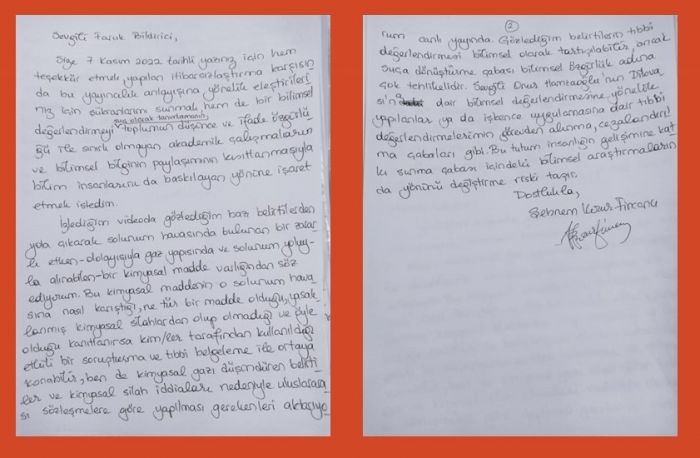 Sevgili Faruk Bildirici,
Size 7 Kasım 2022 tarihli yazınız için hem
teşekkür etmek, yapılan itibarsızlaştırma karşısın
da bu yayıncılık anlayışına yönelik eleştirileri
niz için şükranlarımı sunmak, hem de bir bilimsel
suç olarak tanımlamanın,
değerlendirmeyi toplumun düşünce ve ifade özgürlü
ğü ile sınırlı olmayan akademik çalışmaların
ve bilimsel bilginin paylaşımının kısıtlanmasıyla
bilim insanlarını da baskılayan yönüne işaret
etmek istedim.
İzlediğim videoda gözlediğim bazı belirtilerden
yola çıkarak solunum havasında bulunan bir zarar
lı etken-dolayısıyla gaz yapısında ve solunum yoluy-
la alınabilen-bir kimyasal madde varlığından söz
ediyorum. Bu kimyasal maddenin o solunum hava
sına nasıl karıştığı, ne tür bir madde olduğu, yasak
lanmış kimyasal silahlardan olup olmadığı ve öyle
olduğu kanıtlanırsa kim/ler tarafından kullanıldığı
etkili bir soruşturma ve tıbbi belgeleme ile ortaya
konabilir, ben de kimyasal gazı düşündüren belirti
ler ve kimyasal silah iddiaları nedeniyle uluslarara
sı sözleşmelere göre yapılması gerekenleri aktarıyo
2
rum canlı yayında. Gözlediğim belirtilerin tıbbi
değerlendirmesi bilimsel olarak tartışılabilir, ancak
suça dönüştürme çabası bilimsel özgürlük adına
çok tehlikelidir. Sevgili Onur Hamzaoğlu'nun Dilova
sı'na dair bilimsel değerlendirmesine yönelik
yapılanlar ya da işkence uygulamasına dair tıbbi
değerlendirmelerimin görevden alınma, cezalandırıl
ma çabaları gibi. Bu tutum insanlığın gelişimine kat
kı sunma çabası içindeki bilimsel araştırmaların
da yönünü değiştirme riski taşır.
Dostlukla,
Şebnem Korur Fincancı